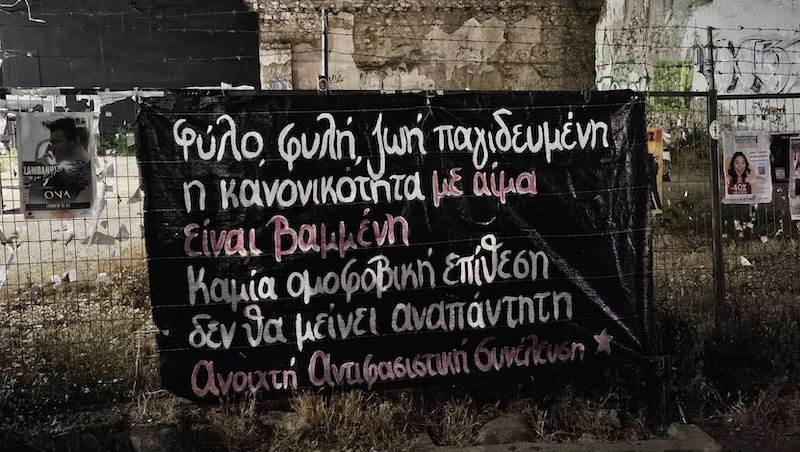 Φύλο, φυλή, ζωή παγιδευμένη
η κανονικότητα με αίμα
είναι βαμμένη
Καμία ομοφοβική επίθεση
δεν θα μείνει αναπάντητη
Ανοιχτή Αντιφασιστική Συνέλευση
ΩΝΑ
-40%